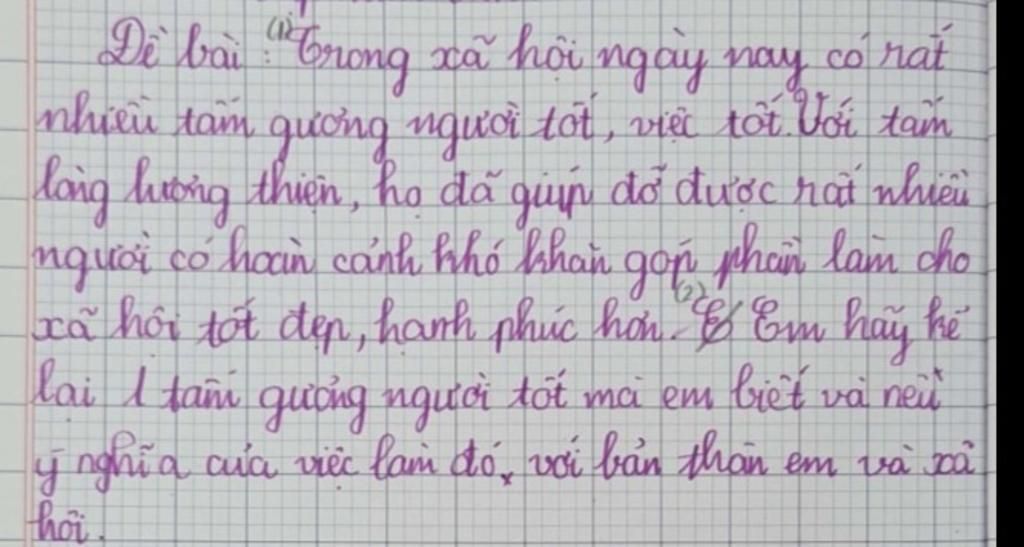 Đề bài: (1) Trong xã hội ngày nay có rất
nhiều tấm gương người tốt, việc tốt. Với tấm
lòng lương thiện, họ đã giúp đỡ được rất nhiều
người có hoàn cảnh khó khăn góp phần làm cho
xã hội tốt đẹp, hạnh phúc hơn. (2) Em hãy kể
lại 1 tấm gương người tốt mà em biết và nêu
ý nghĩa của việc làm đó, với bản thân em và xã
hội.